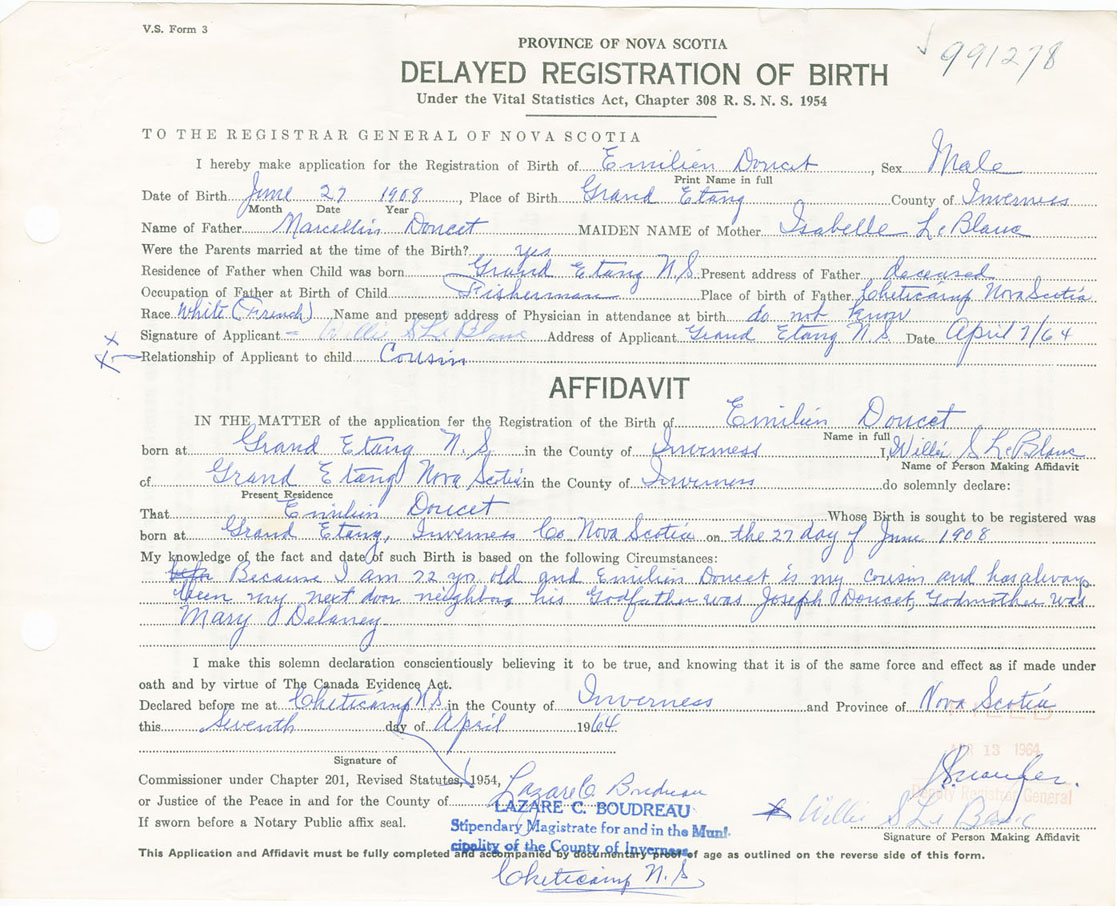 V.S. Form 3
PROVINCE OF NOVA SCOTIA
991278
DELAYED REGISTRATION OF BIRTH
Under the Vital Statistics Act, Chapter 308 R. S. N. S. 1954
TO THE REGISTRAR GENERAL OF NOVA SCOTIA
I hereby make application for the Registration of Birth of Emilien Doucet, Sex Male
Print Name in full
Date of Birth June 27 1908, Place of Birth Grand Etang County of Inverness
Month Date Year
Name of Father Marcellin Doucet MAIDEN NAME of Mother Isabelle LeBlanc
Were the Parents married at the time of the Birth? yes
Residence of Father when Child was born Grand Etang N.S. Present address of Father deceased
Occupation of Father at Birth of Child Fisherman Place of birth of Father Cheticamp Nova Scotia
Race White (French) Name and present address of Physician in attendance at birth do not know
Signature of Applicant Willie S LeBlanc Address of Applicant Grand Etang N.S. Date April 7/64
Relationship of Applicant to child Cousin
AFFIDAVIT
IN THE MATTER of the application for the Registration of the Birth of Emilien Doucet
Name in full
born at Grand Etang N.S. in the County of Inverness I, Willie S LeBlanc
Name of Person Making Affidavit
of Grand Etang Nova Scotia in the County of Inverness do solemnly declare:
Present Residence
That Emilien Doucet Whose Birth is sought to be registered was
born at Grand Etang, Inverness Co. Nova Scotia on the 27 day of June 1908
My knowledge of the fact and date of such Birth is based on the following Circumstances:
Because I am 72 yrs old and Emilien Doucet is my cousin and has always
been my next door neighbors his Godfather was Joseph Doucet, Godmother was
Mary Delaney
I make this solemn declaration conscientiously believing it to be true, and knowing that it is of the same force and effect as if made under
oath and by virtue of The Canada Evidence Act.
Declared before me at Cheticamp N.S. in the County of Inverness and Province of Nova Scotia
this seventh day of April 1964
FILED
APR 13 1964
Deputy Registrar General
Signature of
Commissioner under Chapter 201, Revised Statutes, 1954,
or Justice of the Peace in and for the County of Lazare C Boudreau
If sworn before a Notary Public affix seal.
LAZARE C. BOUDREAU
Stipendary Magistrate for and in the Muni-
cipality of the County of Inverness
Willie S LeBlanc
Signature of Person Making Affidavit
This Application and Affidavit must be fully completed and accompanied by documentary proof of age as outlined on the reverse side of this form.
Cheticamp N.S.